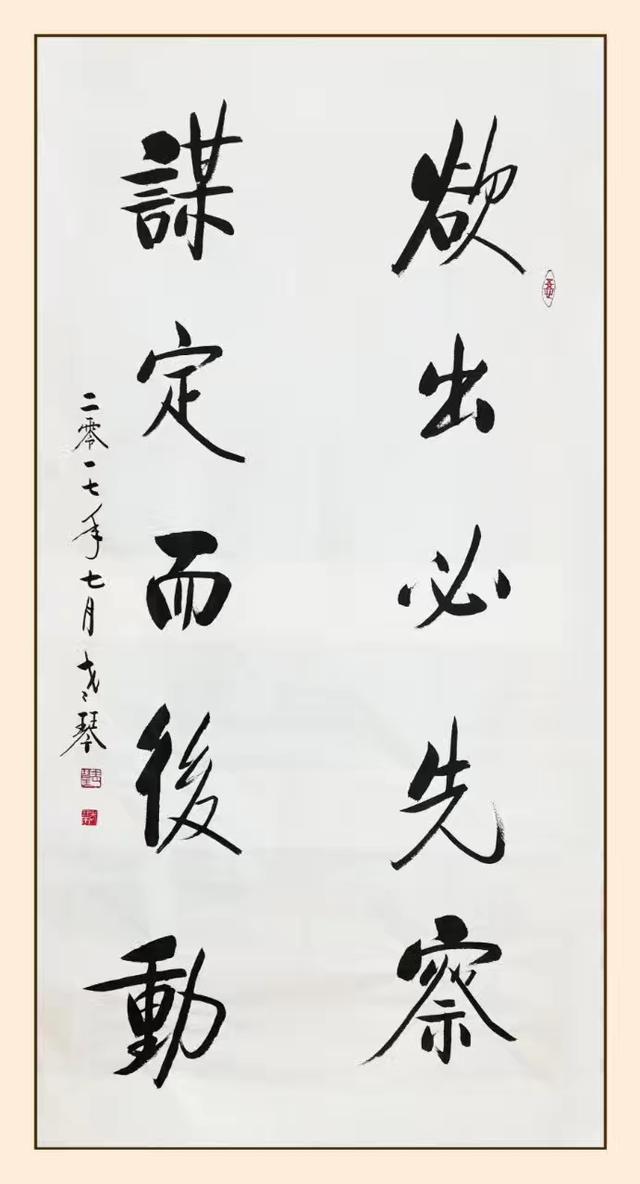 欲出必先察
謀定而後動
二零一七年七月 琴